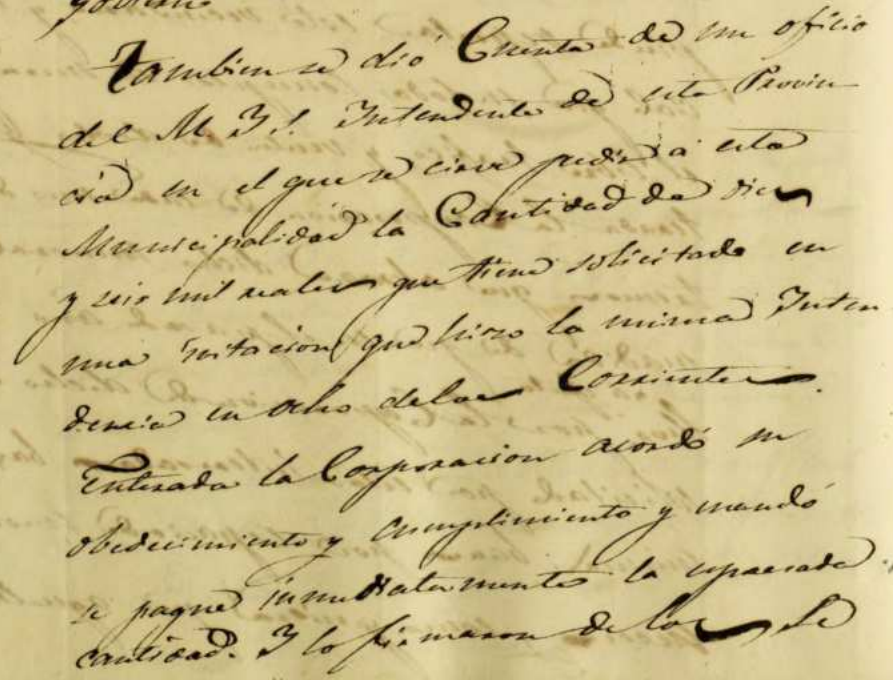 gobierno
Tambien se dió Cuenta de un oficio
del M. I. S. Intendente de esta Provin
cia en el que se sirve pedir á esta
Municipalidad la Cantidad de diez
y seis mil reales que tiene solicitado en
una invitacion que hizo la misma Inten
dencia en ocho de los Corrientes.
Enterada la Corporacion acordó su
obedecimiento y cumplimiento y mandó
se pague inmediatamente la espresada
cantidad. Y lo firmaron de los Se